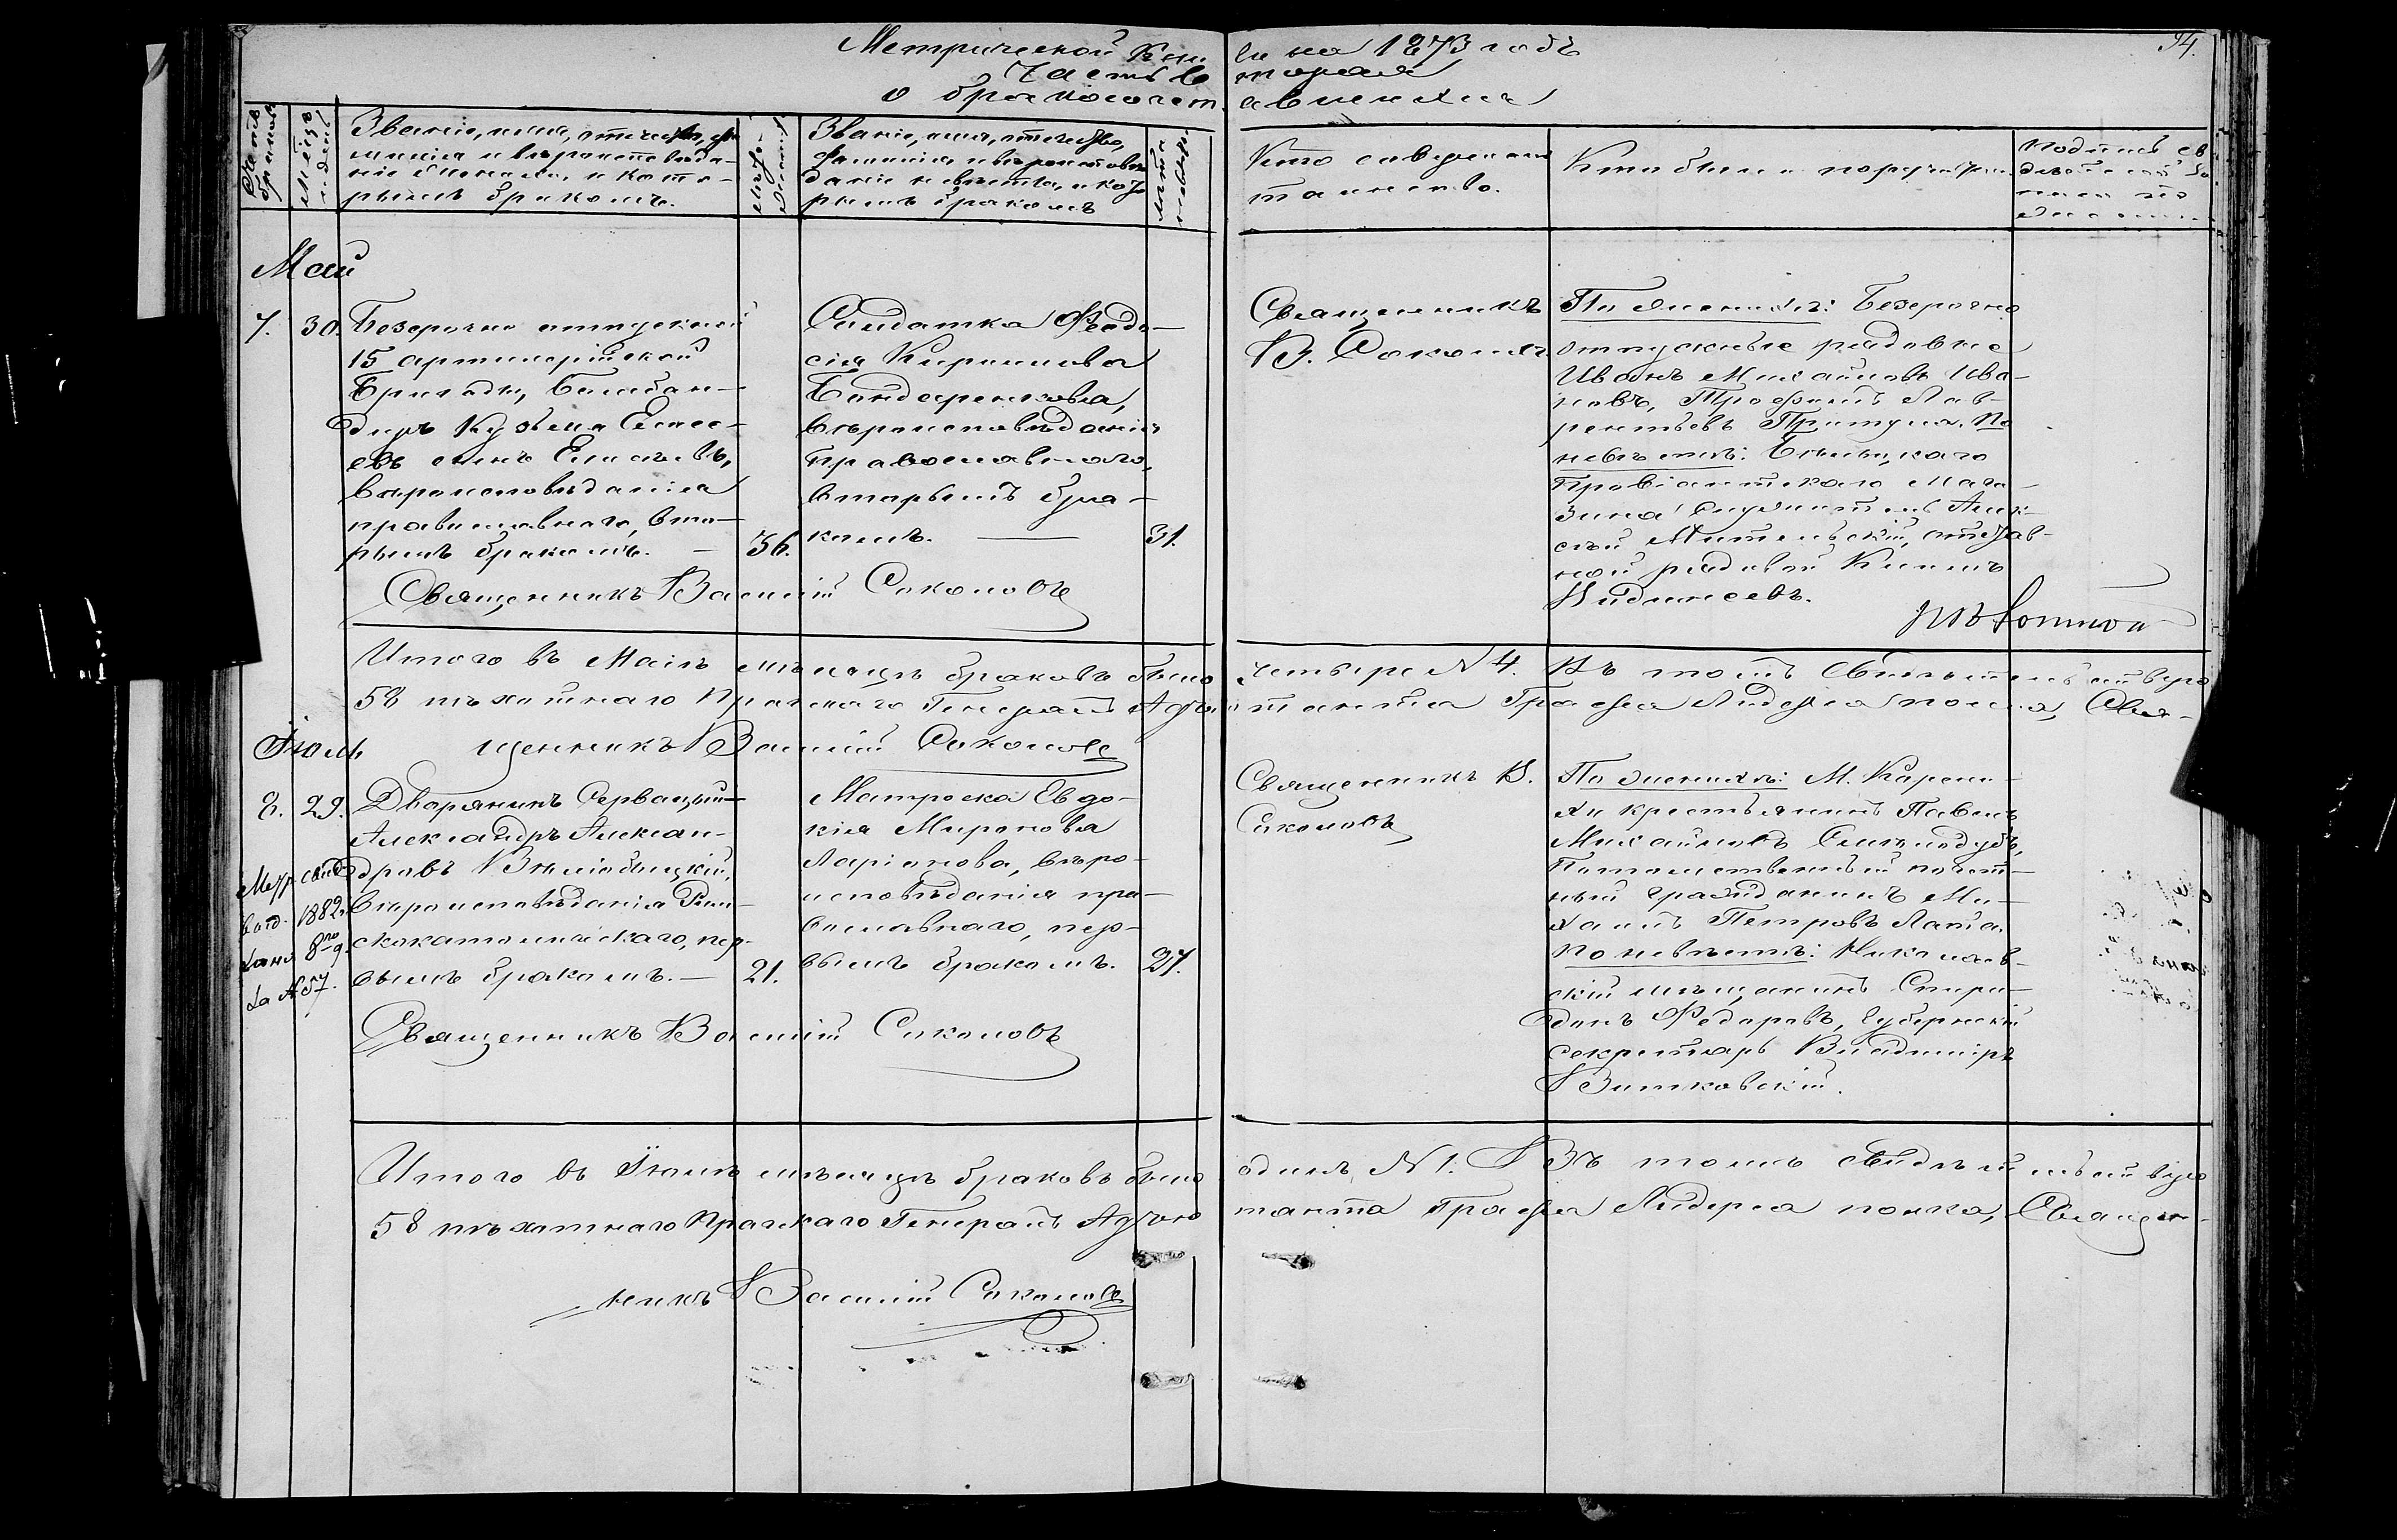 94.
Метрической Книги на 1873 годъ
Часть вторая
о бракосочетавшихся
Счетъ браковъ
Мѣсяцъ и день
Званіе, имя, отчество, фа-
милія и вѣроисповѣда-
ніе жениха, и кото-
рымъ бракомъ.
Лѣта жениха
Званіе, имя, отчество,
фамилія и вѣроисповѣ-
даніе невѣсты, и кото-
рымъ бракомъ
Лѣта невѣсты
Кто совершалъ
таинство.
Кто были поручители
Подпись сви
дѣтелей за
писи по
желанію
Май
7. 30.
Безсрочно отпускной
15 артилерійской
Бригады, Бомбан-
диръ Кузьма Елисе-
евъ сынъ Елисѣевъ,
вѣроисповѣданія
православнаго, вто-
рымъ бракомъ. — 36.
Солдатка Феодо-
сія Кириллова
Бондаренкова,
вѣроисповѣданія
православнаго,
вторымъ бра-
комъ. — 31.
Священникъ
В. Соколовъ
По женихѣ: Безсрочно
отпускные рядовые
Иванъ Михайловъ Ива-
новъ, Трофимъ Лав-
рентьевъ Притула. По
невѣстѣ:
Провіантскаго Мага-
зина служитель Алек-
сѣй отстав-
ной рядовой Климъ
Священникъ Василій Соколовъ
Итого въ Маѣ мѣсяцѣ браковъ было четыре №4. Въ томъ свидѣтельствую
58 пѣхотнаго Прагскаго Генералъ Адъютанта Графа Лидерса полка, Свя-
щенникъ Василій Соколовъ
Іюль
8. 29.
Дворянинъ Серваціи-
Александръ Алексан-
дровъ
вѣроисповѣданія Рим-
скокатолическаго, пер-
вымъ бракомъ. — 21.
Метр. свид.
выд. 1882 г.
Іюня 8го 9.
за №57.
Матроска Евдо-
кія Миронова
Ларіонова, вѣро-
исповѣданія пра-
вославнаго, пер-
вымъ бракомъ. 27.
Священникъ В.
Соколовъ
По женихѣ: М. Карпи-
хи крестьянинъ Павелъ
Михайловъ
Потомственный почет-
ный гражданинъ Ми-
хаилъ Петровъ Лапа.
По невѣстѣ: Николаев-
скій мѣщанинъ Спири-
донъ Федоровъ, Губернскій
секретарь Владиміръ
Витковскій.
Священникъ Василій Соколовъ
Итого въ Іюлѣ мѣсяцѣ браковъ было одинъ, №1. Въ томъ свидѣтельствую
58 пѣхотнаго Прагскаго Генералъ Адъютанта Графа Лидерса полка, Священ-
никъ Василій Соколовъ